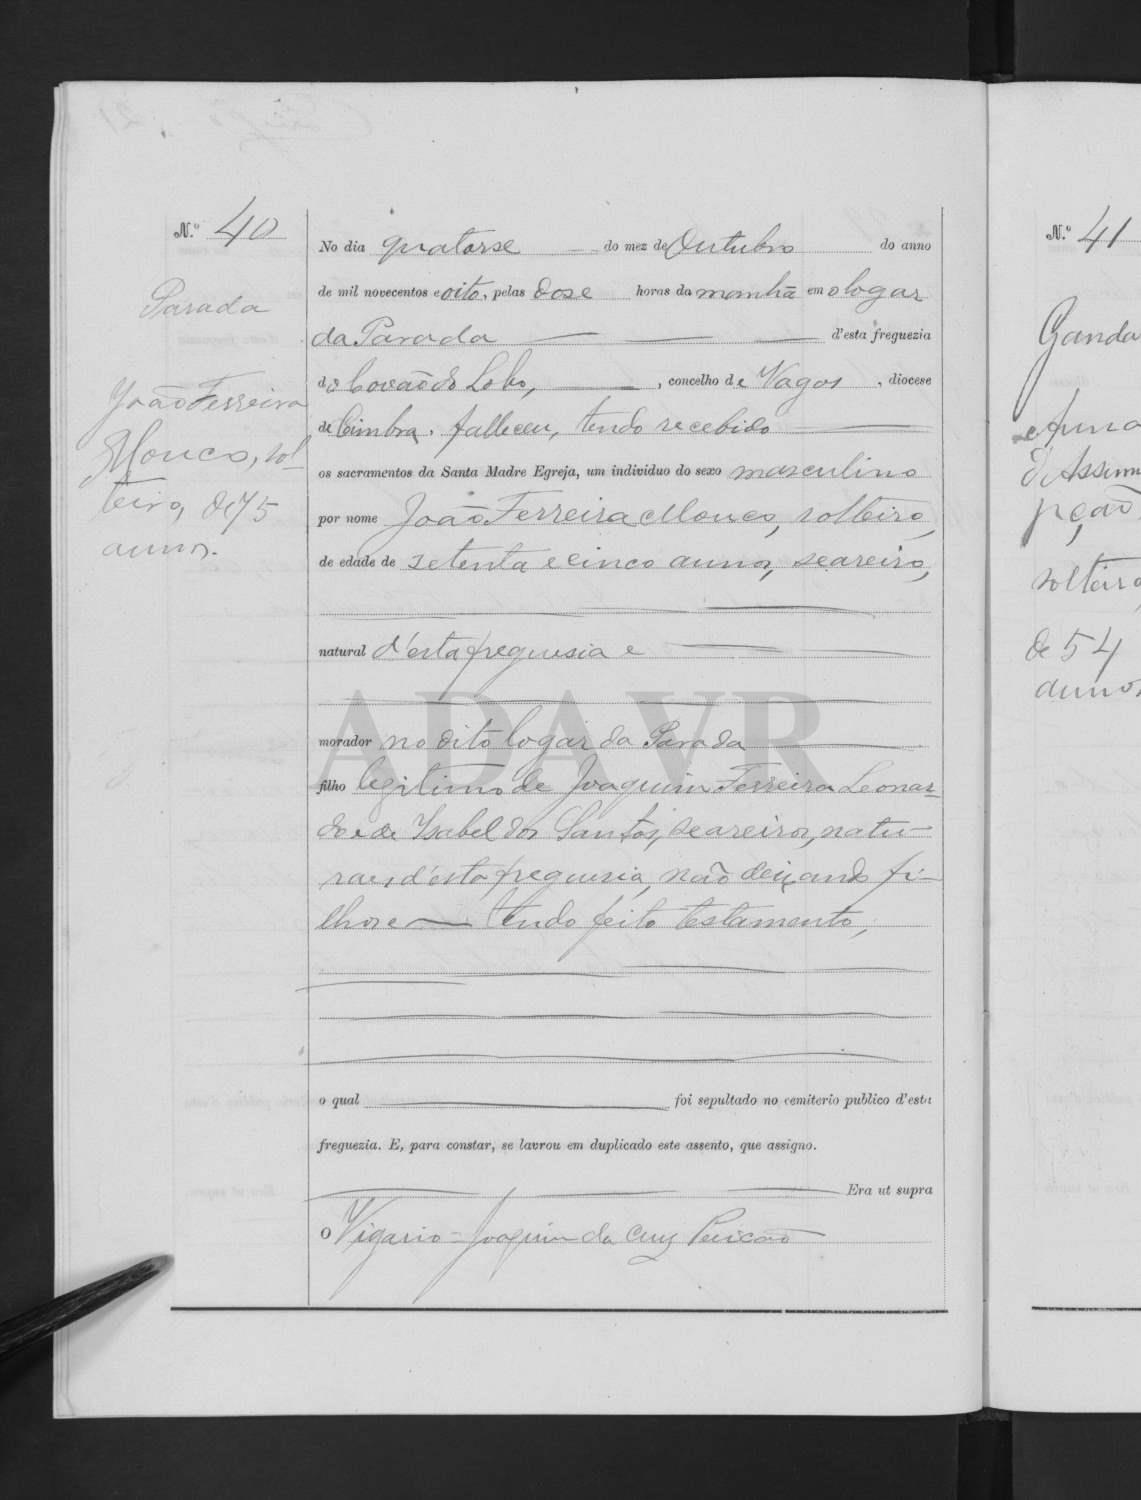 N.º 40
Parada
João Ferreira
Mouco, sol-
teiro, de 75
annos.
No dia quatorse do mez de Outubro do anno
de mil novecentos e oito, pelas dose horas da manhã em o logar
da Parada d'esta freguezia
do Covão do Lobo, concelho de Vagos, diocese
de Coimbra, falleceu, tendo recebido
os sacramentos da Santa Madre Egreja, um individuo do sexo masculino
por nome João Ferreira Mouco, solteiro,
de edade de setenta e cinco annos, seareiro,
natural d'esta freguesia e
ADAVR
morador no dito logar da Parada
filho legitimo de Joaquim Ferreira Leonar-
do e de Ysabel dos Santos, seareiros, natu-
raes d'esta freguesia, não deixando fi-
lhos e tendo feito testamento,
o qual foi sepultado no cemiterio publico d'esta
freguezia. E, para constar, se lavrou em duplicado este assento, que assigno.
Era ut supra
O Vigario = Joaquim da Cruz
N.º 41
Ganda
d'Assum
pção,
solteiro
de 54
annos